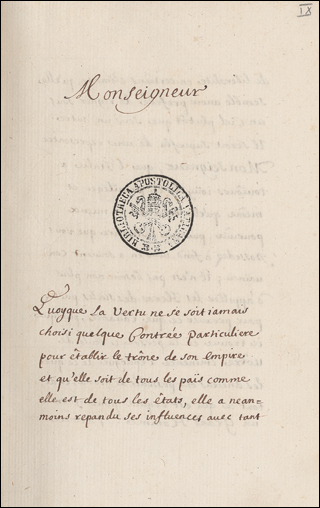 IX
Monseigneur
BIBLIOTHECA APOSTOLICA VATICANA
Quoyque la Vertu ne se soit iamais
choisi quelque Contrée Particuliere
pour établir le trône de son empire
et qu'elle soit de tous les païs comme
elle est de tous les êtats, elle a nean-
moins repandu ses influences avec tant